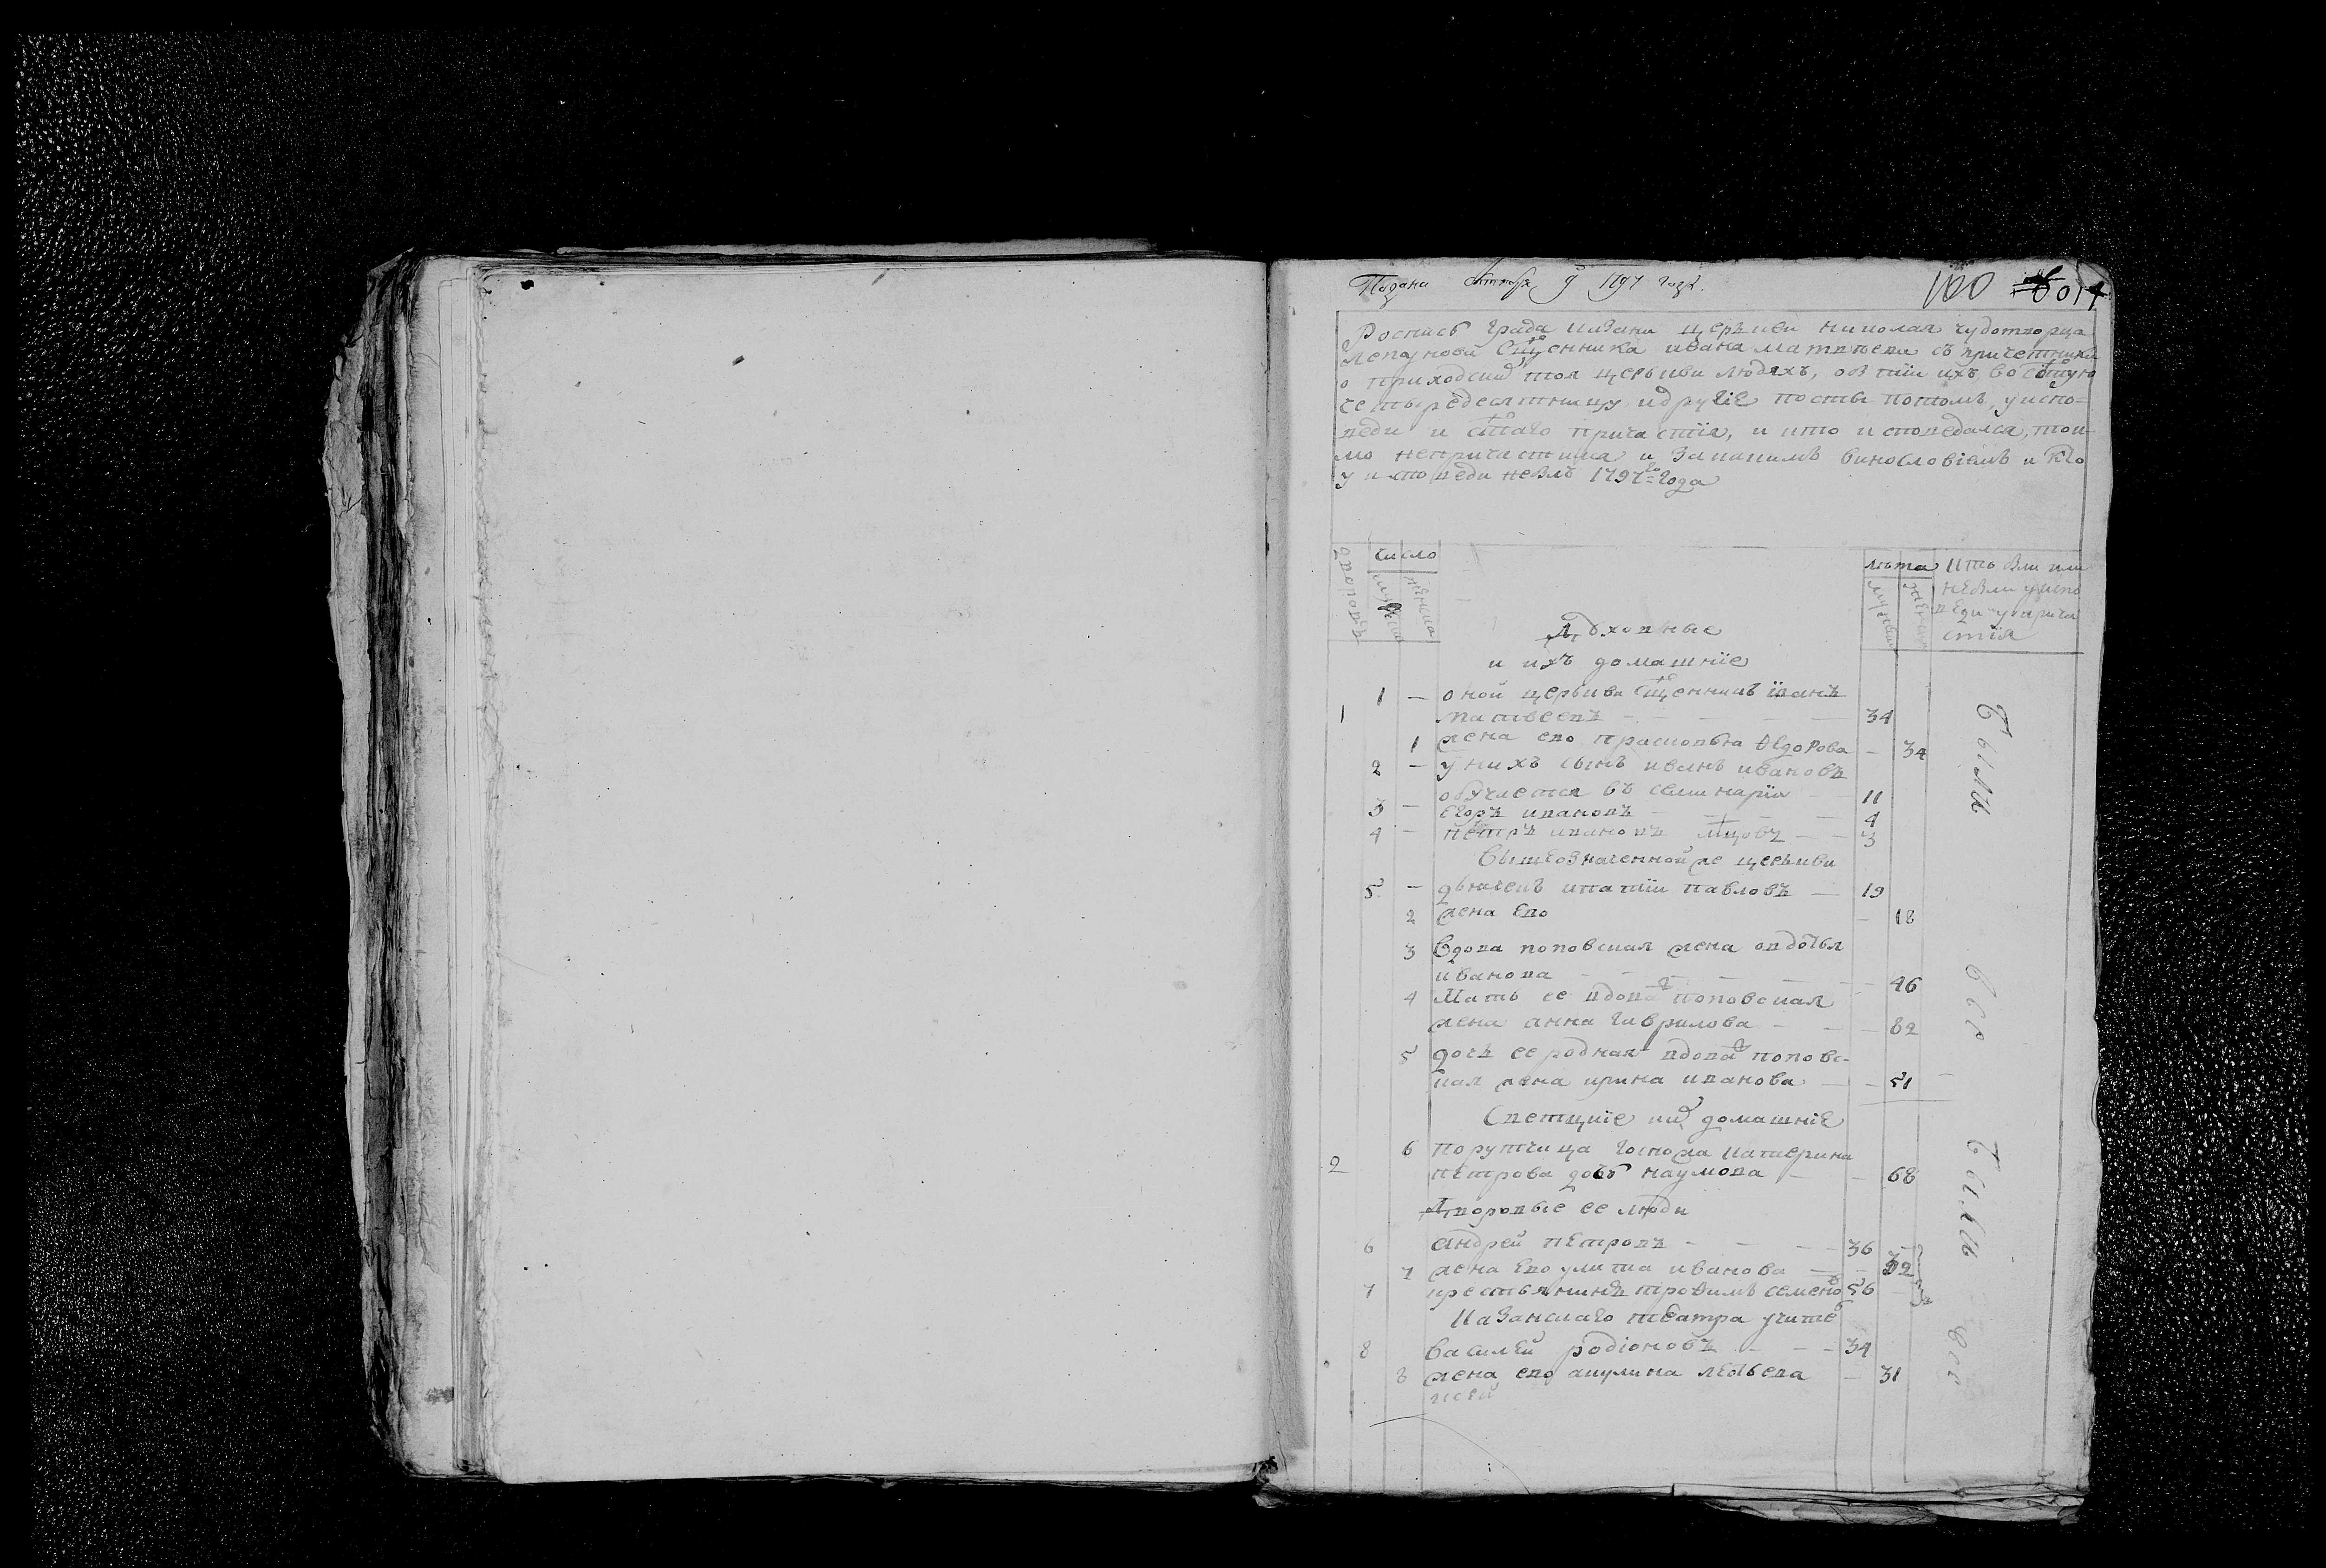 Подана октября 9 1797 года.
100
Роспись града казани церкви николая чудотворца
сщенника ивана матвеева съ причетники
о приходскихъ тоя церькви людяхъ, обытіи ихъ во стую
четыредесятницу, идругіе посты потомъ, уиспо-
веди и стаго причастія, и кто исповедался, ток-
мо непричастился и закакимъ винословіемъ и кто
у исповеди небылъ 1797го года
дворовъ
число
мужеска
женска
лѣта
мужеск
женск
кто были или
небыли уиспо
веди и упричa
стія
Духовные
и ихъ домашніе
1 — оной церькви сщенникъ іванъ
1 матвеевъ — 34
1 жена ево прасковья ѳедорова — 34
2 — у нихъ сынъ иванъ ивановъ
обучается въ семинаріи — 11
3 — егоръ ивановъ — 4
4 — петръ ивановъ — 3
Вышеозначенной же церькви
5 — дьячекъ ипатіи павловъ — 19
2 жена ево — 18
3 вдова поповская жена овдотья
иванова — 46
4 Мать ее вдовая поповская
жена анна гаврилова — 82
5 дочь ее родная вдовая поповс-
кая жена ирина иванова — 51
Светцкіе ихъ домашніе
6 порутчица госпожа катерина
2 петрова дочь наумова — 68
Дворовые ее люди
6 андрей петровъ — 36
7 жена ево улита иванова — 32
7 крестьянинъ трофимъ семено 56
Казанскаго театра учите
8 василей родіоновъ — 34
8 жена ево акулина — 31
были
всѣ
были
всѣ